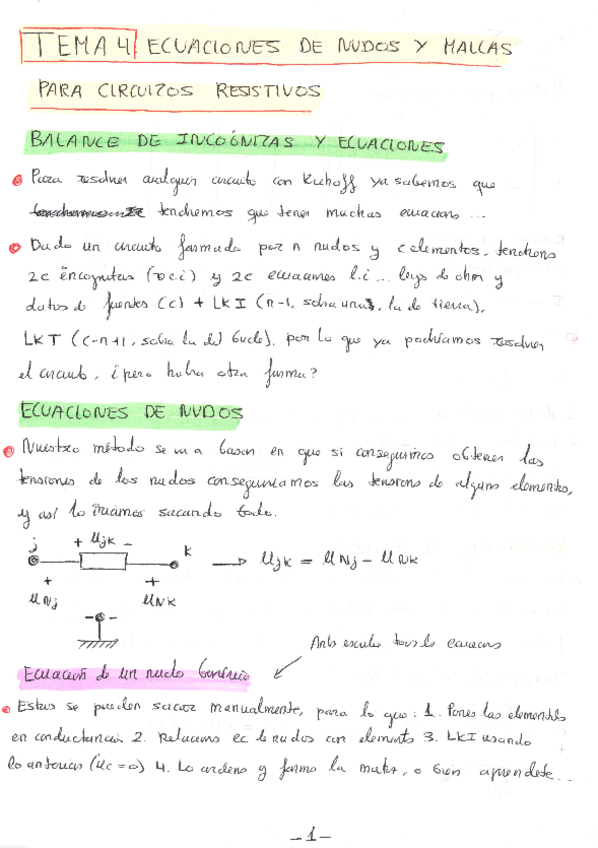 TEMA 4 ECUACIONES DE NUDOS Y MALLAS
PARA CIRCUITOS RESISTIVOS
BALANCE DE INCOGNITAS Y ECUACIONES
Para resolver cualquier circuito con Kirhoff ya sabemos que
tendremos que tener muchas ecuacions ...
Dado un circuito formado por n nudos y c elementos, tendrems
2c incognitas (v e i) y 2c ecuaciones l.i ... leys de ohm y
datos de fuentes (c) + LKI (n-1, sobra una, la de tierra),
LKT (c-n+1, sobra la del bucle), por lo que ya podríamos resolver
el circuito, ¿pero habra otra forma?
ECUACIONES DE NUDOS
Nuestro método se va a basar en que si conseguimos obtener las
tensiones de los nudos conseguiríamos las tensions de alguns elementos,
y así lo iríamos sacando todo.
j + Ujk - k → Ujk = UNj - UNk
+ +
UNj UNk
- -
Ants escribo tods ls ecuacions
Ecuación de un nudo Genérico
Estas se pueden sacar manualmente, para lo que: 1. Pones las elementos
en conductancia 2. Relacions ec de nudos con elements 3. LKI usando
lo anterior (ic=0) 4. Lo ordeno y formo la matriz, o bien aprendete...
-1-